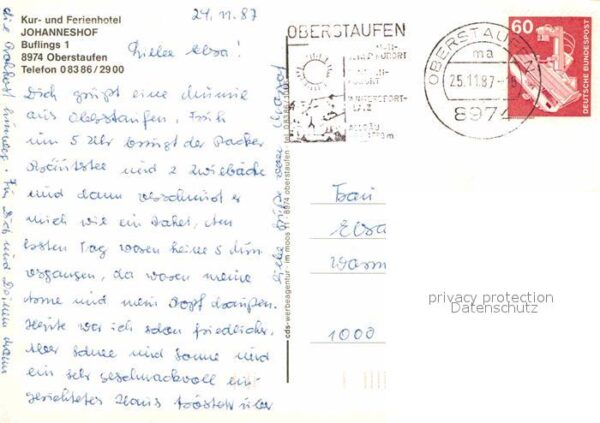 Kur- und Ferienhotel
JOHANNESHOF
Buflings 1
8974 Oberstaufen
Telefon 08386/2900
24.11.87
Liebe Elsa!
Dich grüßt eine dünne
aus Oberstaufen. Früh
um 5 Uhr bringt der Packer
Kräutertee und 2 Zwiebäcke
und dann verschnürt er
mich wie ein Paket, den
ersten Tag waren keine 5 Min
vergangen, da waren meine
Arme und mein Kopf draußen.
Heute war ich schon friedlicher.
Aber Schnee und Sonne und
ein sehr geschmackvoll ein
gerichtetes Haus trösten über
die
Für Dich und
liebe Grüße von
cds-werbeagentur · im moos 11 · 8974 oberstaufen
OBERSTAUFEN
OBERSTAUFEN
ma
25.11.87
8974
60
DEUTSCHE BUNDESPOST
Frau
Elsa
1000
privacy protection
Datenschutz